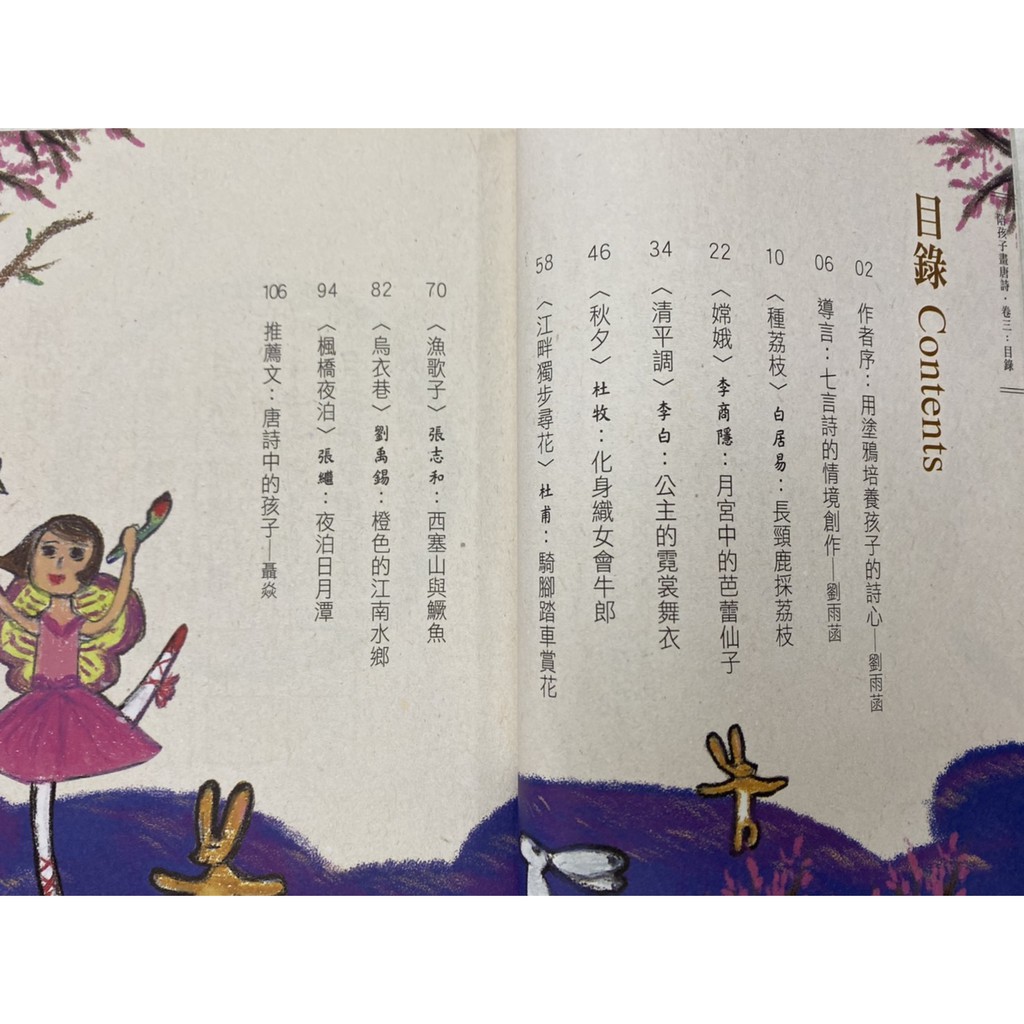 陪孩子畫唐詩・卷三：目錄
目錄 Contents
02 作者序：用塗鴉培養孩子的詩心—劉雨菡
06 導言：七言詩的情境創作—劉雨菡
10 〈種荔枝〉白居易：長頸鹿採荔枝
22 〈嫦娥〉李商隱：月宮中的芭蕾仙子
34 〈清平調〉李白：公主的霓裳舞衣
46 〈秋夕〉杜牧：化身織女會牛郎
58 〈江畔獨步尋花〉杜甫：騎腳踏車賞花
70 〈漁歌子〉張志和：西塞山與鱖魚
82 〈烏衣巷〉劉禹錫：橙色的江南水鄉
94 〈楓橋夜泊〉張繼：夜泊日月潭
106 推薦文：唐詩中的孩子—聶焱